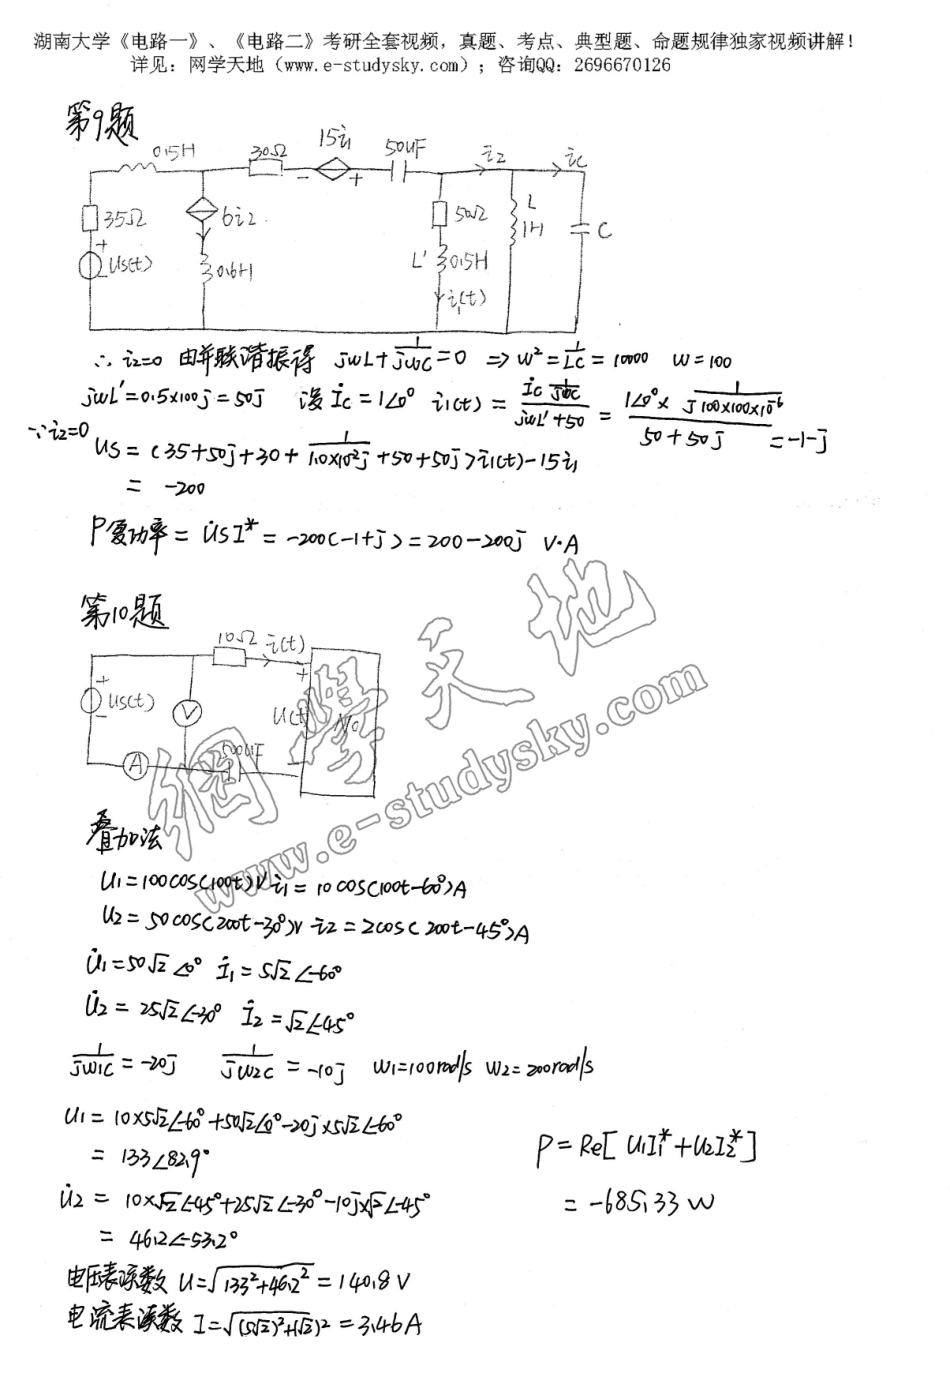 湖南大学《电路一》、《电路二》考研全套视频，真题、考点、典型题、命题规律独家视频讲解！
详见：网学天地（www.e-studysky.com）；咨询QQ：2696670126
第9题
0.5H 30Ω 15i₁ 50uF i₂ ic
- +
35Ω 6i₂ 50Ω L 1H C
+ Us(t) - 0.6H L' 0.5H
i₁(t)
∴ i₂=0 由并联谐振得 jwL+1/jwC=0 ⇒ w²=1/LC=10000 w=100
jwL'=0.5×100j=50j 设 İc=1∠0° i₁(t)= (İc 1/jwc)/(jwL'+50) = (1∠0°× 1/(j100×100×10⁻⁶))/(50+50j) =-1-j
∵i₂=0
US=(35+50j+30+1/(1.0×10²j)+50+50j)i₁(t)-15i₁
= -200
P复功率= U̇sI*=-200(-1+j)=200-200j V·A
第10题
10Ω i(t)
+ Us(t) - V + U(t) - No
A 500uF
網學天地
www.e-studysky.com
叠加法
U₁=100cos(100t)V i₁=10cos(100t-60°)A
U₂=50cos(200t-30°)V i₂=2cos(200t-45°)A
U̇₁=50√2∠0° İ₁=5√2∠-60°
U̇₂=25√2∠-30° İ₂=√2∠-45°
1/jw₁C=-20j 1/jw₂C=-10j w₁=100rad/s w₂=200rad/s
U₁=10×5√2∠-60°+50√2∠0°-20j×5√2∠-60°
=133∠82.9°
U̇₂=10×√2∠-45°+25√2∠-30°-10j×√2∠-45°
=46.2∠-53.2°
P=Re[U₁I₁*+U₂I₂*]
=-685.33W
电压表示数 U=√(133²+46.2²)=140.8V
电流表读数 I=√((5√2)²+(√2)²)=3.46A